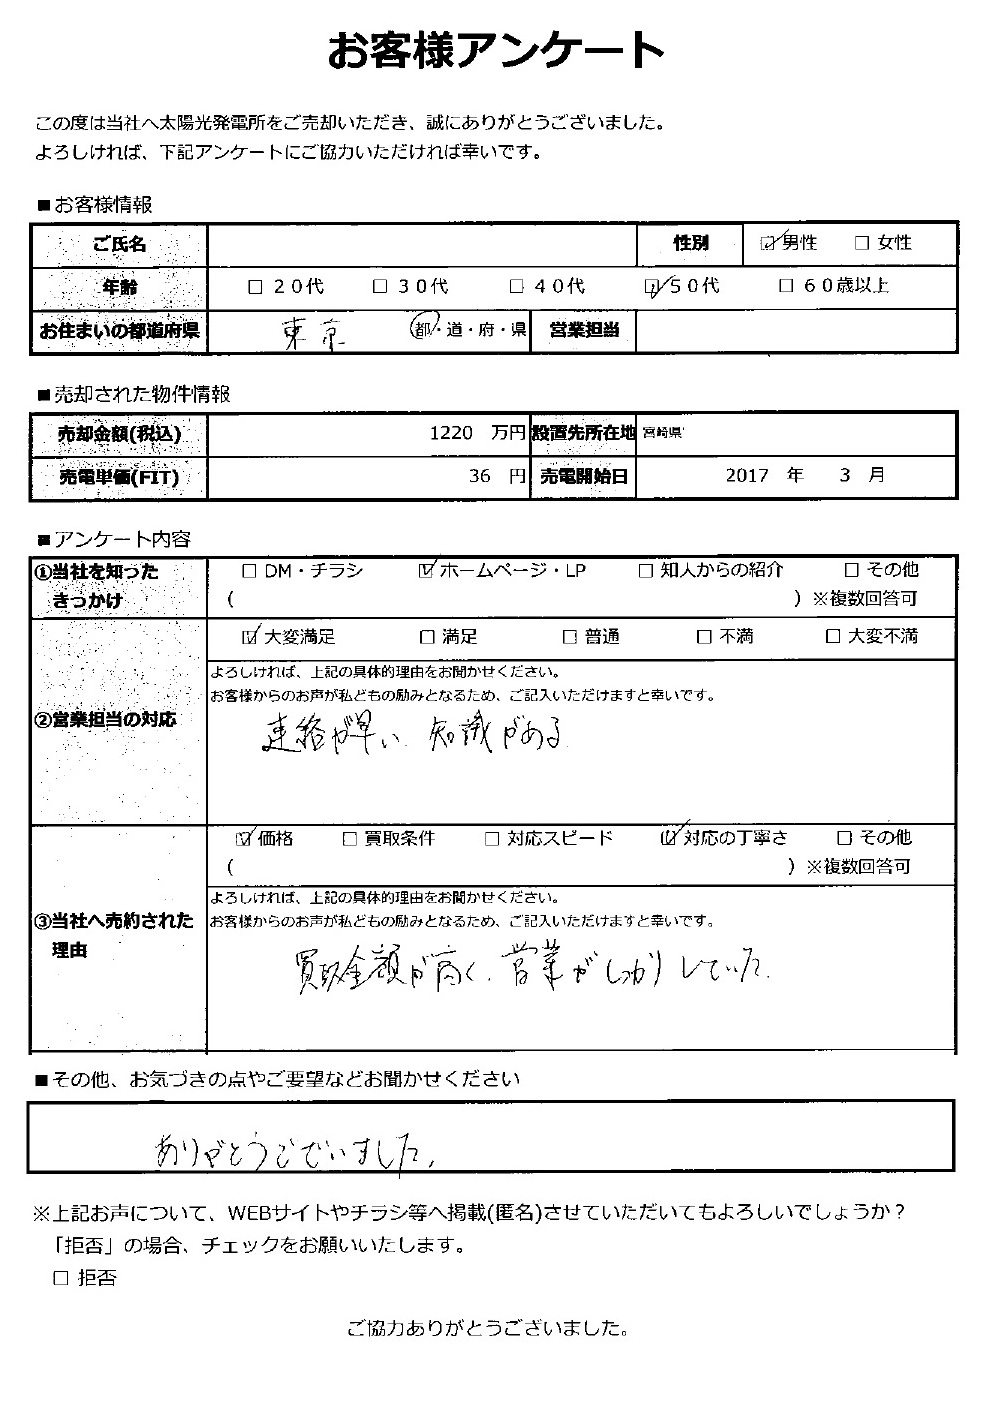 お客様アンケート
この度は当社へ太陽光発電所をご売却いただき、誠にありがとうございました。
よろしければ、下記アンケートにご協力いただければ幸いです。
■お客様情報
ご氏名 性別 ☑男性 □ 女性
年齢 □ 20代 □ 30代 □ 40代 ☑50代 □ 60歳以上
お住まいの都道府県 東京 都・道・府・県 営業担当
■売却された物件情報
売却金額(税込) 1220 万円 設置先所在地 宮崎県
売電単価(FIT) 36 円 売電開始日 2017 年 3 月
■アンケート内容
①当社を知った
きっかけ
□ DM・チラシ ☑ホームページ・LP □ 知人からの紹介 □ その他
( ) ※複数回答可
②営業担当の対応
☑大変満足 □ 満足 □ 普通 □ 不満 □ 大変不満
よろしければ、上記の具体的理由をお聞かせください。
お客様からのお声が私どもの励みとなるため、ご記入いただけますと幸いです。
連絡が早い、知識がある
③当社へ売約された
理由
☑価格 □ 買取条件 □ 対応スピード ☑対応の丁寧さ □ その他
( ) ※複数回答可
よろしければ、上記の具体的理由をお聞かせください。
お客様からのお声が私どもの励みとなるため、ご記入いただけますと幸いです。
買取金額が高く、営業がしっかりしていた。
■その他、お気づきの点やご要望などお聞かせください
ありがとうございました。
※上記お声について、WEBサイトやチラシ等へ掲載(匿名)させていただいてもよろしいでしょうか？
「拒否」の場合、チェックをお願いいたします。
□ 拒否
ご協力ありがとうございました。